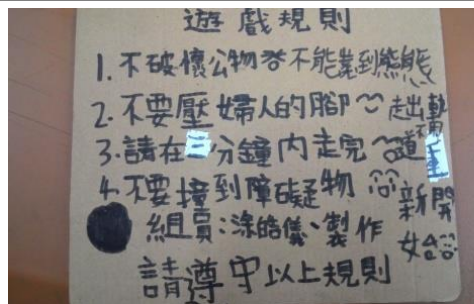 遊戲規則
1.不破懷公物 不能靠到熊熊
2.不要壓婦人的腳
3.請在三分鐘內走完
4.不要撞到障礙物
超出軌道重新開始
組員:涂皓儀、製作
請遵守以上規則